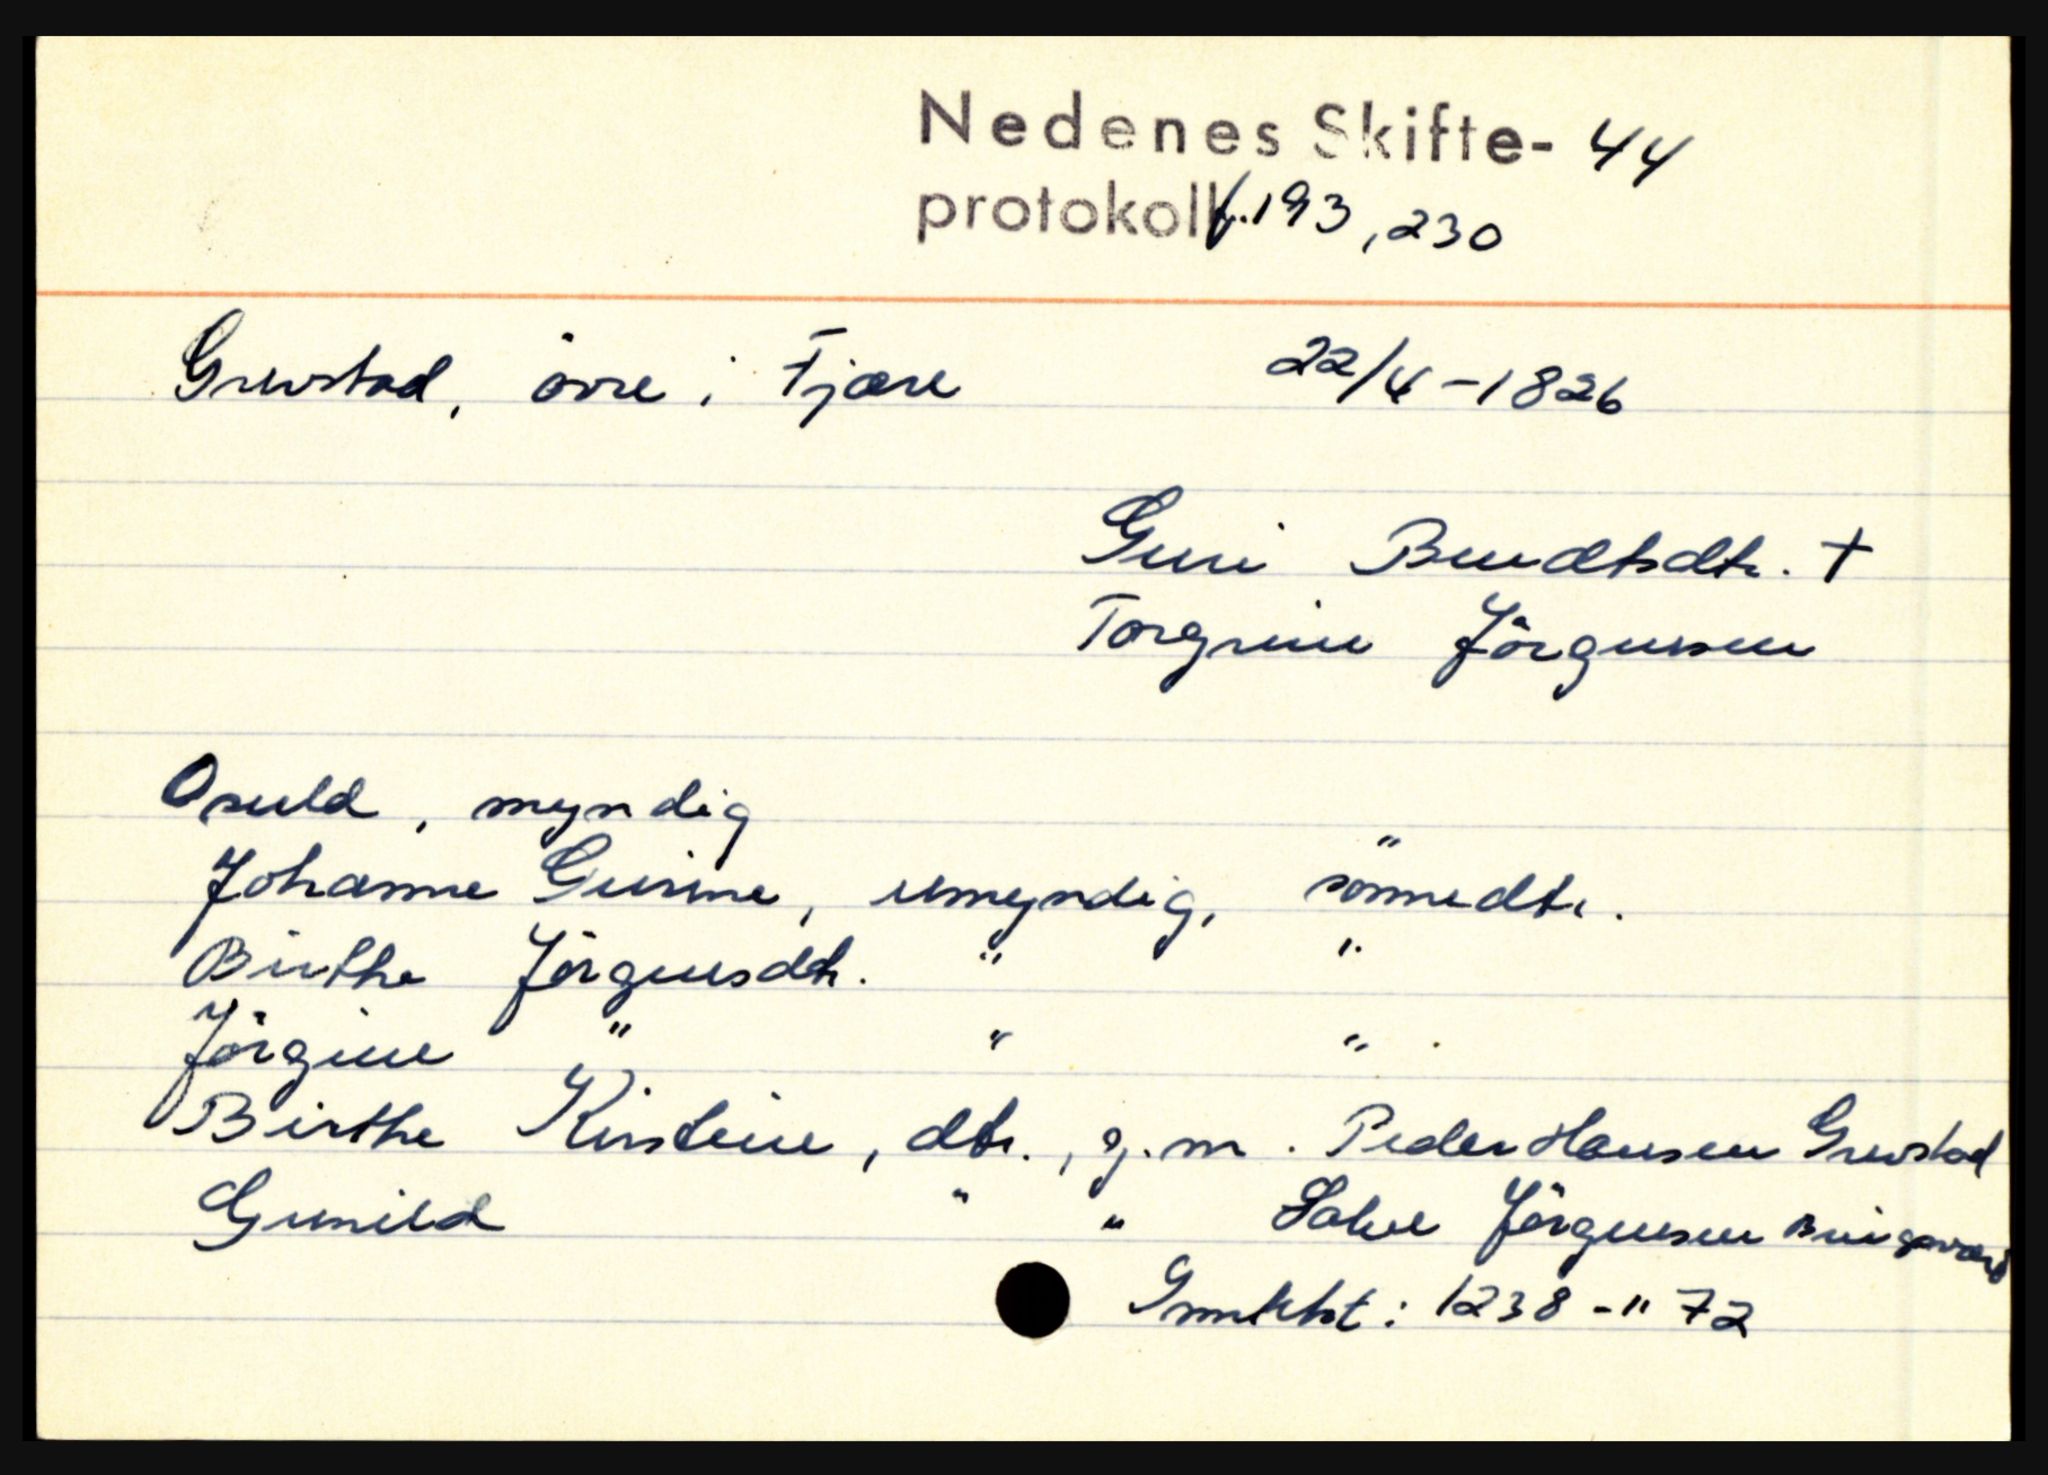 Nedenes Skifte- 44
protokoll f. 193, 230
Grevstad, övre i Fjære 22/4-1826
Guri Berndtsdtr. †
Torgrim Jörgensen
Osuld, myndig
Johanne Gurine, umyndig, sönnedtr.
Birthe Jörgensdtr. " "
Jörgine " " "
Birthe Kirstine, dtr., g.m. Peder Hansen Grevstad
Gunild " " Salve Jörgensen Bringsværd
: 1238 -"- 72